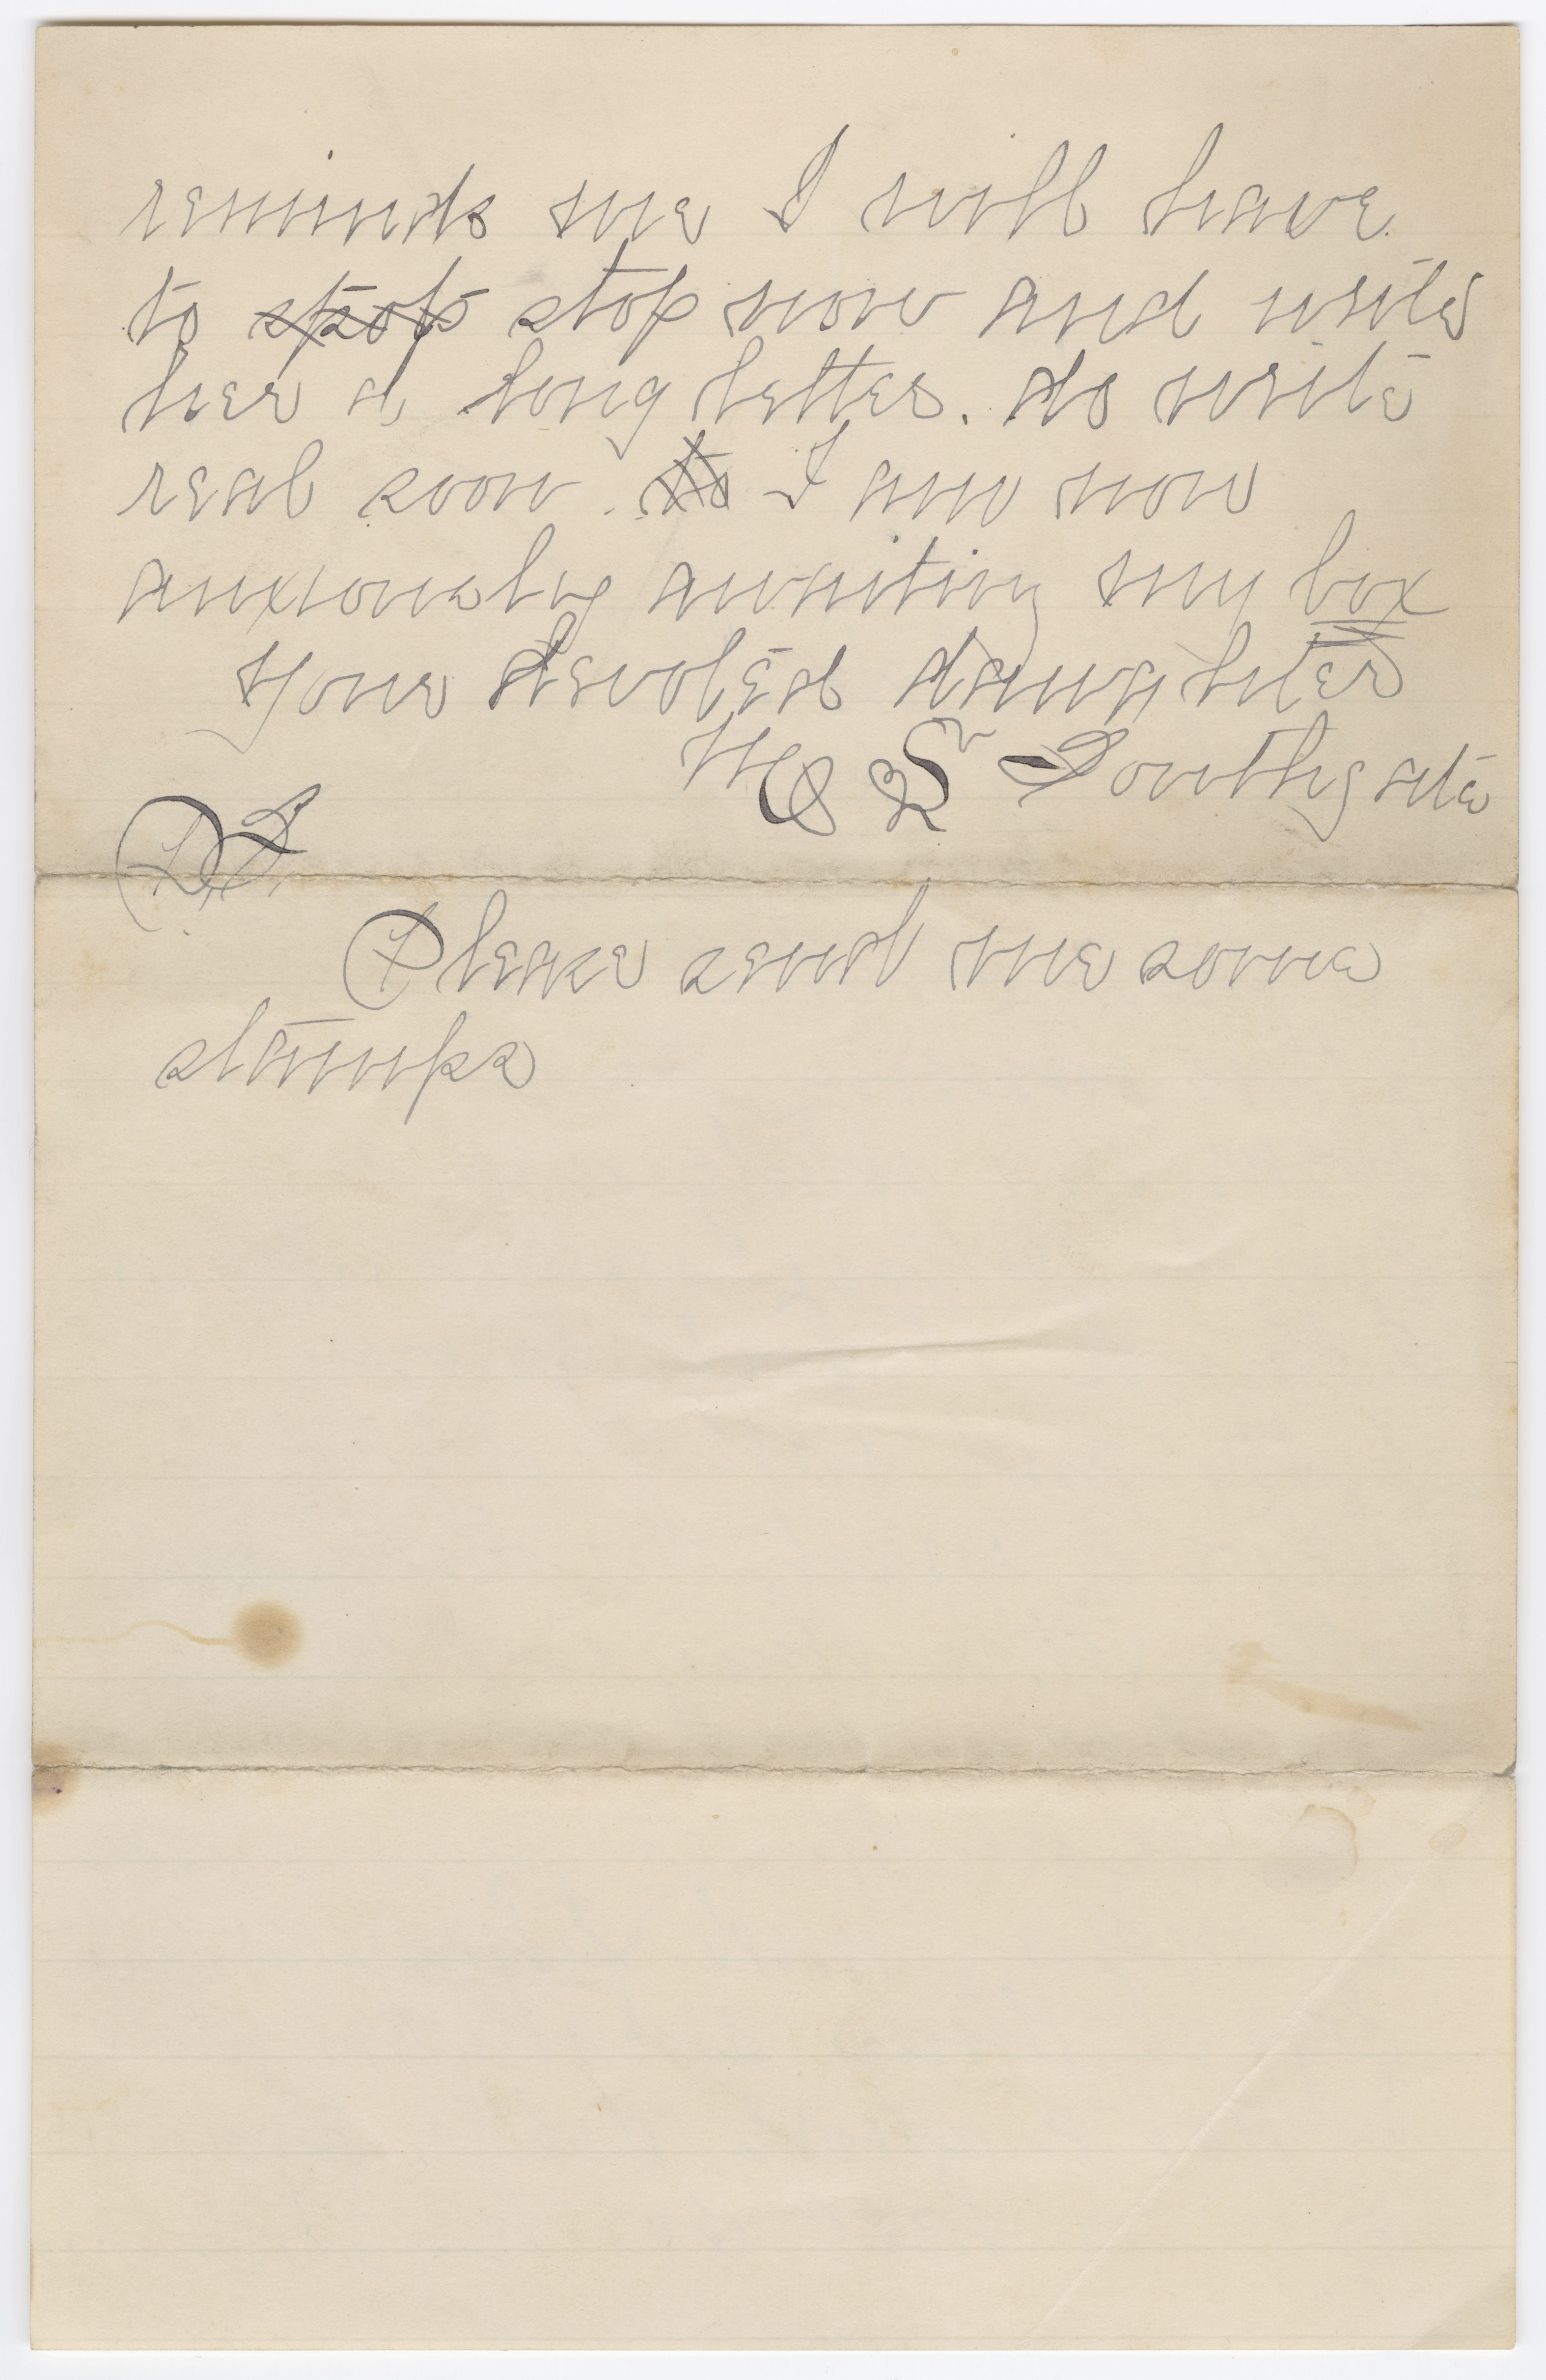 reminds me I will have
to stop stop now and write
her a long letter. do write
real soon. to I am now
anxiously awaiting my box
Your devoted daughter
Southgate
P.S.
Please send me some
stamps